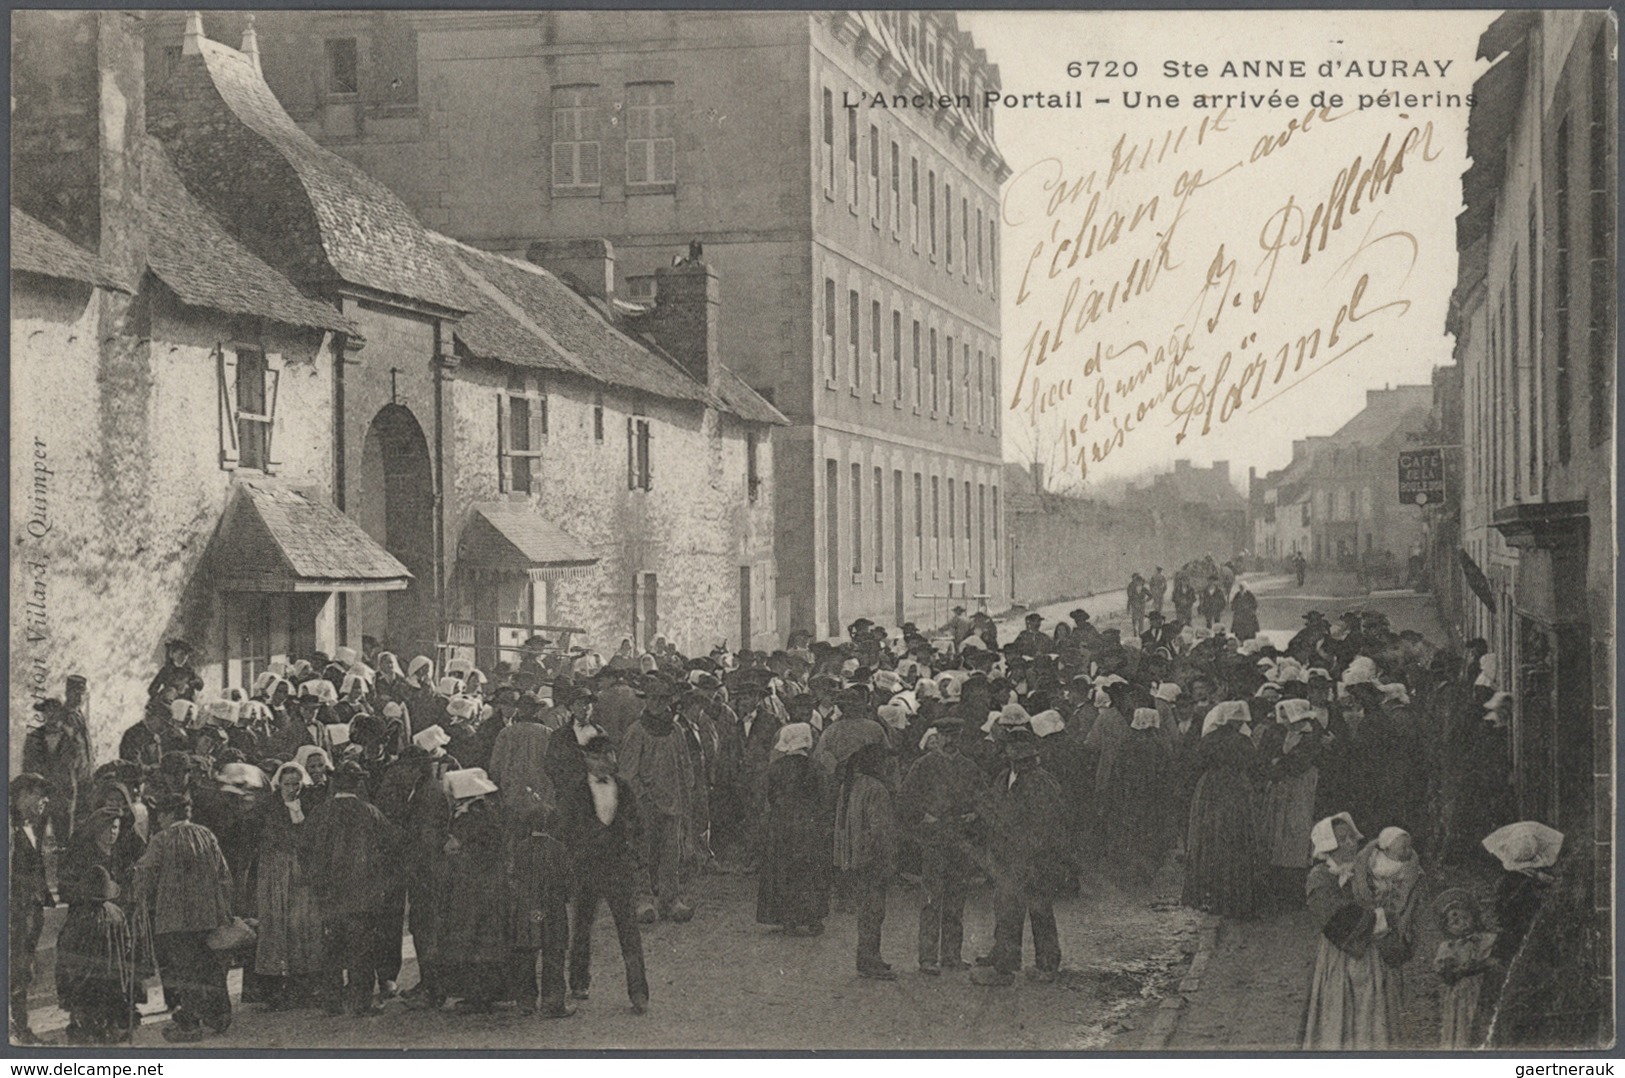 6720 Ste ANNE d'AURAY
L'Ancien Portail – Une arrivée de pélerins
Continue
l'échange avec
plaisir
lieu de
pélerinage
CAFÉ
DE LA
BOULE D'OR
Collection Villard, Quimper
www.delcampe.net
gaertnerauk